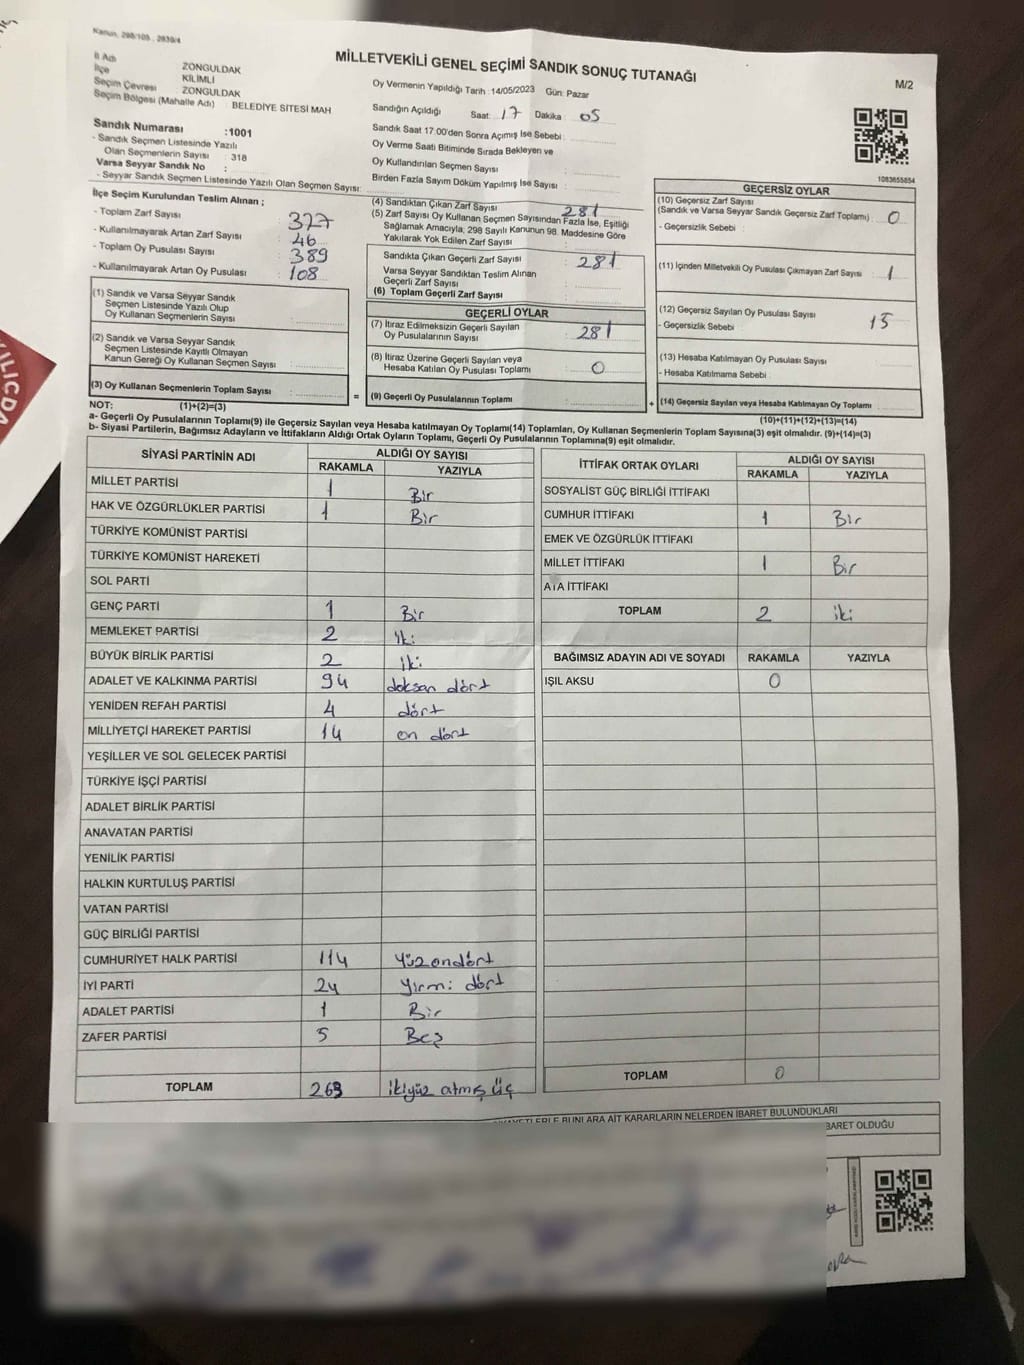 Kanun, 298/105 , 2839/4
MİLLETVEKİLİ GENEL SEÇİMİ SANDIK SONUÇ TUTANAĞI
M/2
İl Adı ZONGULDAK
İlçe KİLİMLİ
Seçim Çevresi ZONGULDAK
Seçim Bölgesi (Mahalle Adı) : BELEDİYE SİTESİ MAH
Sandık Numarası :1001
- Sandık Seçmen Listesinde Yazılı
Olan Seçmenlerin Sayısı : 318
Varsa Seyyar Sandık No :
- Seyyar Sandık Seçmen Listesinde Yazılı Olan Seçmen Sayısı:
Oy Vermenin Yapıldığı Tarih :14/05/2023 Gün: Pazar
Sandığın Açıldığı Saat: 17 Dakika : 05
Sandık Saat 17.00'den Sonra Açımış İse Sebebi :
Oy Verme Saati Bitiminde Sırada Bekleyen ve
Oy Kullandırılan Seçmen Sayısı :
Birden Fazla Sayım Döküm Yapılmış İse Sayısı :
1083655854
İlçe Seçim Kurulundan Teslim Alınan ;
- Toplam Zarf Sayısı : 327
- Kullanılmayarak Artan Zarf Sayısı : 46
- Toplam Oy Pusulası Sayısı : 389
- Kullanılmayarak Artan Oy Pusulası : 108
(1) Sandık ve Varsa Seyyar Sandık
Seçmen Listesinde Yazılı Olup
Oy Kullanan Seçmenlerin Sayısı :
(2) Sandık ve Varsa Seyyar Sandık
Seçmen Listesinde Kayıtlı Olmayan
Kanun Gereği Oy Kullanan Seçmen Sayısı :
(3) Oy Kullanan Seçmenlerin Toplam Sayısı :
(4) Sandıktan Çıkan Zarf Sayısı : 281
(5) Zarf Sayısı Oy Kullanan Seçmen Sayısından Fazla İse, Eşitliği
Sağlamak Amacıyla; 298 Sayılı Kanunun 98. Maddesine Göre
Yakılarak Yok Edilen Zarf Sayısı :
Sandıkta Çıkan Geçerli Zarf Sayısı : 281
Varsa Seyyar Sandıktan Teslim Alınan
Geçerli Zarf Sayısı :
(6) Toplam Geçerli Zarf Sayısı :
GEÇERLİ OYLAR
(7) İtiraz Edilmeksizin Geçerli Sayılan
Oy Pusulalarının Sayısı : 281
(8) İtiraz Üzerine Geçerli Sayılan veya
Hesaba Katılan Oy Pusulası Toplamı : 0
= (9) Geçerli Oy Pusulalarının Toplamı :
GEÇERSİZ OYLAR
(10) Geçersiz Zarf Sayısı
(Sandık ve Varsa Seyyar Sandık Geçersiz Zarf Toplamı) : 0
- Geçersizlik Sebebi :
(11) İçinden Milletvekili Oy Pusulası Çıkmayan Zarf Sayısı : 1
(12) Geçersiz Sayılan Oy Pusulası Sayısı : 15
- Geçersizlik Sebebi :
(13) Hesaba Katılmayan Oy Pusulası Sayısı :
- Hesaba Katılmama Sebebi :
+ (14) Geçersiz Sayılan veya Hesaba Katılmayan Oy Toplamı :
NOT: (1)+(2)=(3)
(10)+(11)+(12)+(13)=(14)
a- Geçerli Oy Pusulalarının Toplamı(9) ile Geçersiz Sayılan veya Hesaba katılmayan Oy Toplamı(14) Toplamları, Oy Kullanan Seçmenlerin Toplam Sayısına(3) eşit olmalıdır. (9)+(14)=(3)
b- Siyasi Partilerin, Bağımsız Adayların ve İttifakların Aldığı Ortak Oyların Toplamı, Geçerli Oy Pusulalarının Toplamına(9) eşit olmalıdır.
SİYASİ PARTİNİN ADI ALDIĞI OY SAYISI
RAKAMLA YAZIYLA
MİLLET PARTİSİ 1 Bir
HAK VE ÖZGÜRLÜKLER PARTİSİ 1 Bir
TÜRKİYE KOMÜNİST PARTİSİ
TÜRKİYE KOMÜNİST HAREKETİ
SOL PARTİ
GENÇ PARTİ 1 Bir
MEMLEKET PARTİSİ 2 iki
BÜYÜK BİRLİK PARTİSİ 2 iki
ADALET VE KALKINMA PARTİSİ 94 doksan dört
YENİDEN REFAH PARTİSİ 4 dört
MİLLİYETÇİ HAREKET PARTİSİ 14 on dört
YEŞİLLER VE SOL GELECEK PARTİSİ
TÜRKİYE İŞÇİ PARTİSİ
ADALET BİRLİK PARTİSİ
ANAVATAN PARTİSİ
YENİLİK PARTİSİ
HALKIN KURTULUŞ PARTİSİ
VATAN PARTİSİ
GÜÇ BİRLİĞİ PARTİSİ
CUMHURİYET HALK PARTİSİ 114 Yüzondört
İYİ PARTİ 24 yirmi dört
ADALET PARTİSİ 1 Bir
ZAFER PARTİSİ 5 Beş
TOPLAM 263 ikiyüz atmış üç
İTTİFAK ORTAK OYLARI ALDIĞI OY SAYISI
RAKAMLA YAZIYLA
SOSYALİST GÜÇ BİRLİĞİ İTTİFAKI
CUMHUR İTTİFAKI 1 Bir
EMEK VE ÖZGÜRLÜK İTTİFAKI
MİLLET İTTİFAKI 1 Bir
ATA İTTİFAKI
TOPLAM 2 iki
BAĞIMSIZ ADAYIN ADI VE SOYADI RAKAMLA YAZIYLA
IŞIL AKSU 0
TOPLAM 0
BUNLARA AİT KARARLARIN NELERDEN İBARET BULUNDUKLARI
BARET OLDUĞU